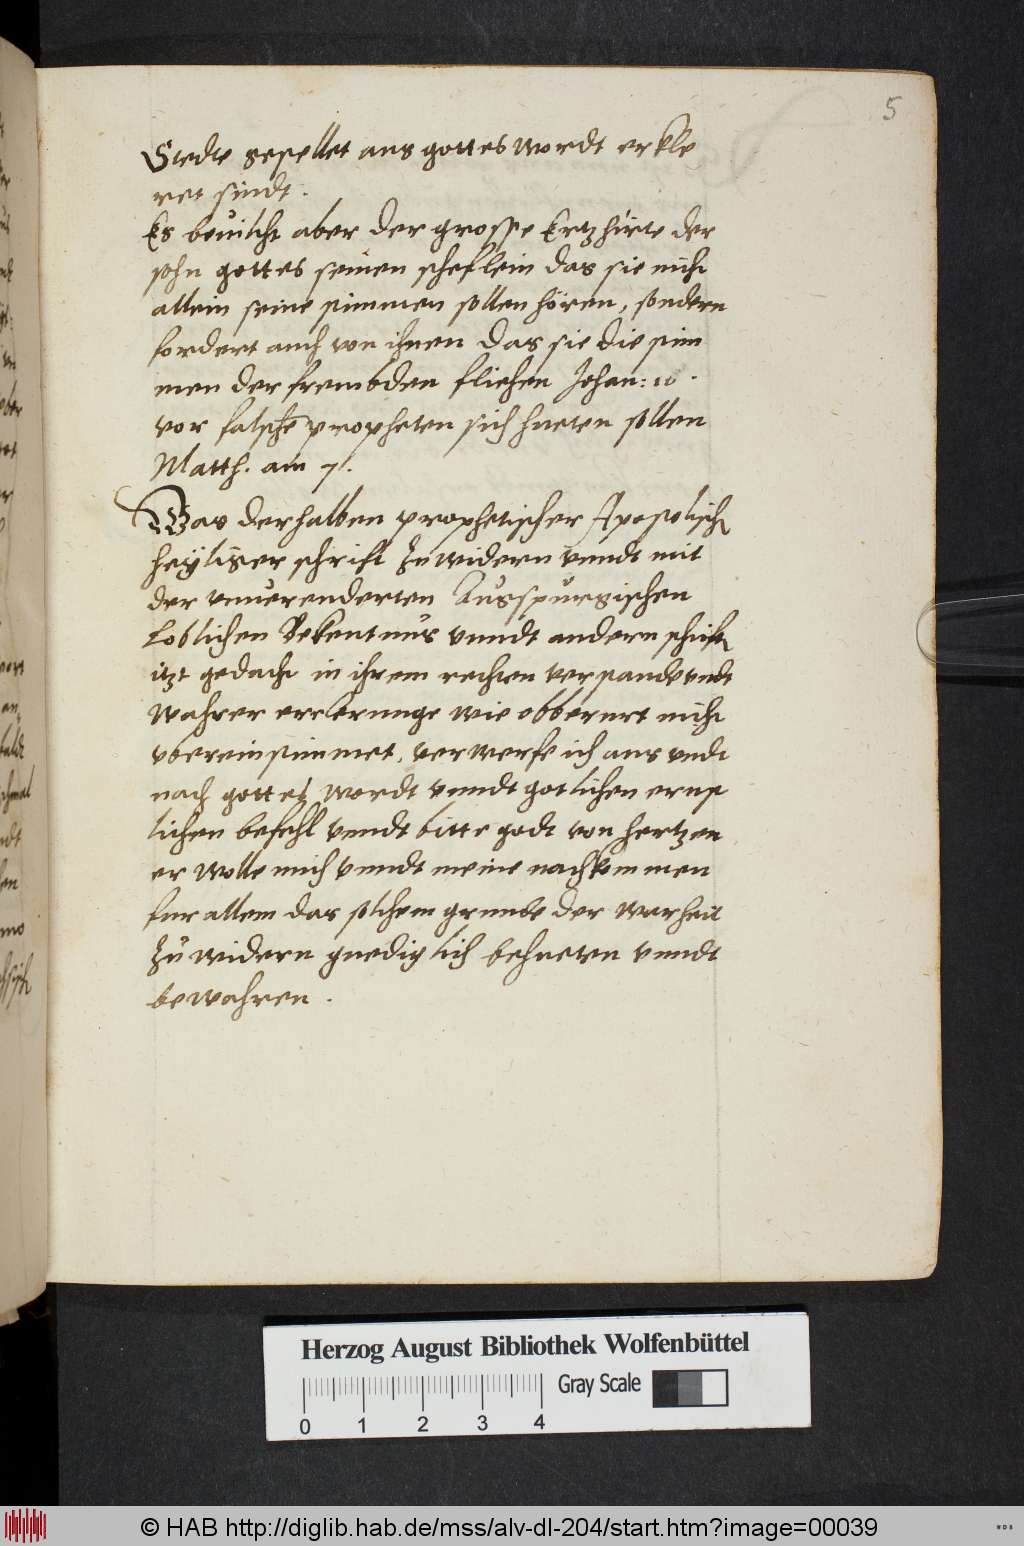 5
Stedte gestellet aus gottes wordt erkle
ret sindt.
Es beuilcht aber der grosse Ertzhirte der
sohn gottes seinen scheflein das sie nicht
allein seine stimmen sollen hören, sondern
fordert auch von ihnen das sie die stim
men der frembden fliehen Johan: 10.
vor falsche propheten sich hueten sollen
Matth. am 7.
Was derhalben prophetischer Apostolisch
heyliger schrift zuwidern vnndt mit
der vnuerenderten Ausspurgischen
Loblichen Bekentnus vnndt andern schrift
itzt gedacht in ihrem rechten verstandt vndt
wahrer erclerunge wie obberurt nicht
vbereinstimmet, verwerfe ich aus vndt
nach gottes wordt vnndt gotlichen ernst
lichen befehl vnndt bitte godt von hertzen
er wolle mich vnndt meine nachkommen
fur allem das solchem grunde der warheit
zuwidern gnediglich behueten vnndt
bewahren.
Herzog August Bibliothek Wolfenbüttel
Gray Scale
0 1 2 3 4
© HAB http://diglib.hab.de/mss/alv-dl-204/start.htm?image=00039